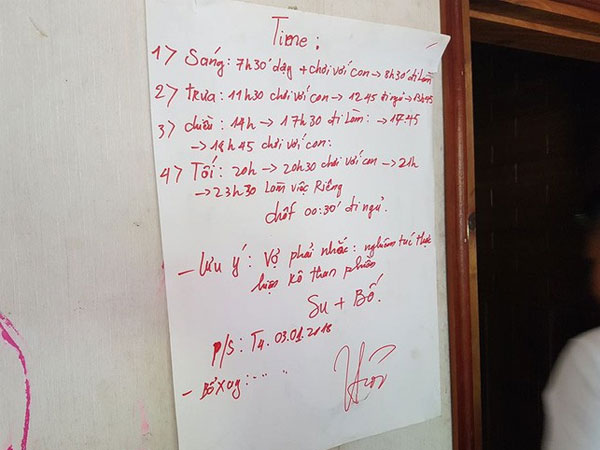 Time:
1> Sáng: 7h30' dậy + chơi với con → 8h30' đi làm
2> trưa: 11h30 chơi với con → 12h45 đi ngủ → 13h45
3> chiều: 14h → 17h30 đi làm: → 17h45
→ 18h45 chơi với con:
4> Tối: 20h → 20h30 chơi với con → 21h
→ 23h30 Làm việc Riêng
chốt 00:30' đi ngủ.
- Lưu ý: Vợ phải nhắc: nghiêm túc thực
hiện kô than phiền
Su + Bố.
p/s: T4. 03.01.2018
- Bổ xung: - " - "